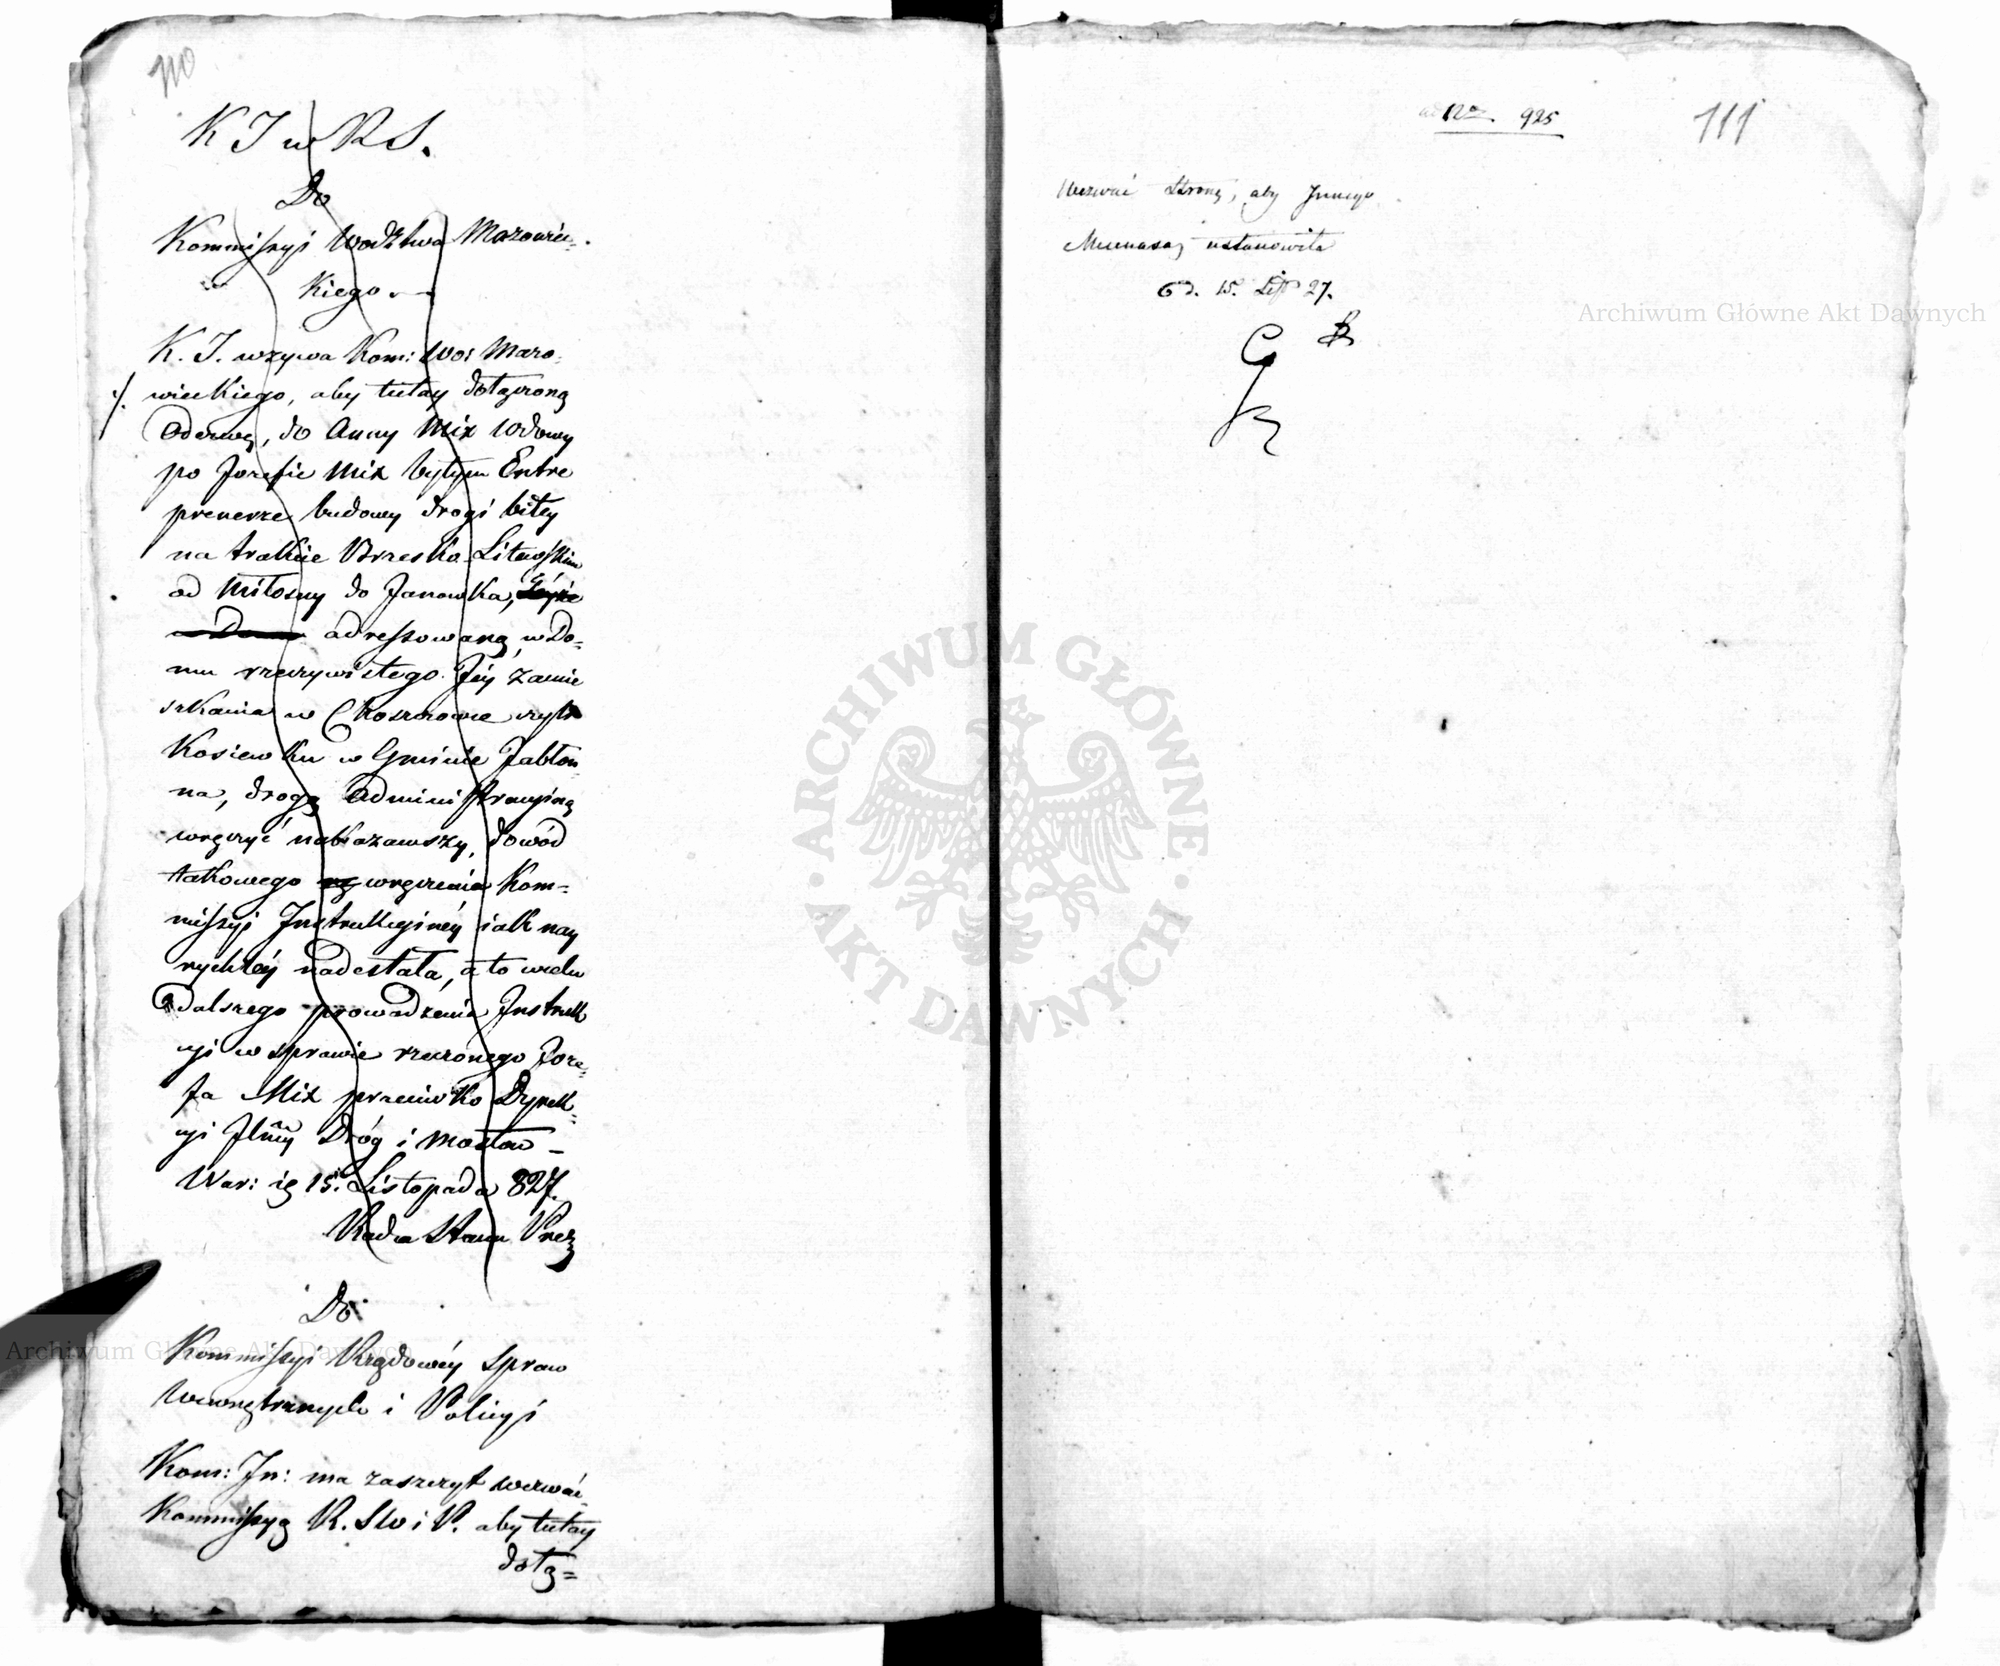 110
K J w R S.
Do
Kommissyi Wodztwa Mazowiec-
kiego
K. J. wzywa Kom: Wo: Mazo-
wieckiego, aby tutay dołączoną
Odezwę, do Anny Mix wdowy
po Jozefie Mix byłym Entre
prenerze budowy drogi bitey
na trakcie Brzesko-Litewskim
od Miłosny do Janowka,
adressowaną, w Do-
mu rzeczywistego Jéy zamie
szkania w Choszczowce czyli
Kosiewku w Gminie Jabłon-
na, drogą Administracyiną
wręczyć nakazawszy, dowód
takowego wręczenia Kom-
missyi Instrukcyinéy iak nay
rychléy nadesłała, a to w celu
dalszego prowadzenia Instruk
cyi w sprawie rzeczonego Joze-
fa Mix przeciwko Dyrek-
cyi Jlnéy Dróg i mostów –
War: ig 15. Listopada 827.
Radca Stanu Prez
Do
Kommissyi Rządowéy Spraw
Wewnętrznych i Policyi
Kom: In: ma zaszczyt wezwać
Kommissyą R. S W i P. aby tutay
dołą=
ad 12 925
111
Wezwać Stronę, aby Innego
Mecenasa ustanowiła
d. 15. List 27.
Archiwum Główne Akt Dawnych
ARCHIWUM GŁÓWNE
AKT DAWNYCH
Archiwum Główne Akt Dawnych